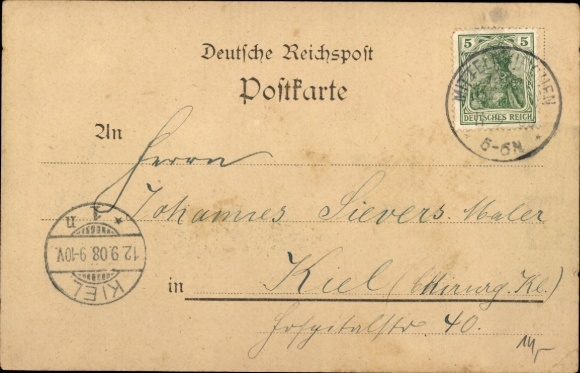 Deutsche Reichspost
Postkarte
5 5
DEUTSCHES REICH
5-6N
An
Herrn
Johannes Sievers. Maler
in Kiel (Chirurg. Kl.)
Hospitalstr. 40.
KIEL
1 n
12.9.08 9-10V.
14,-